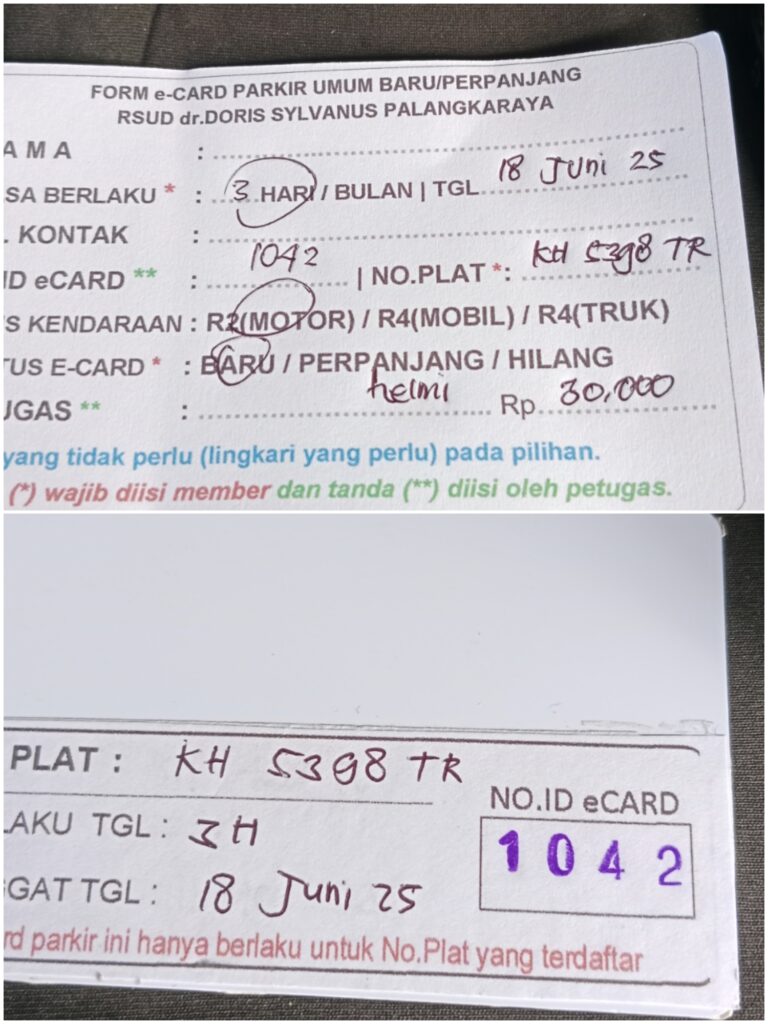 FORM e-CARD PARKIR UMUM BARU/PERPANJANG
RSUD dr.DORIS SYLVANUS PALANGKARAYA
A M A :
SA BERLAKU * : 3 HARI / BULAN | TGL 18 Juni 25
. KONTAK :
ID eCARD ** : 1042 | NO.PLAT *: KH 5398 TR
S KENDARAAN : R2(MOTOR) / R4(MOBIL) / R4(TRUK)
TUS E-CARD * : BARU / PERPANJANG / HILANG
UGAS ** : helmi Rp 30.000
yang tidak perlu (lingkari yang perlu) pada pilihan.
(*) wajib diisi member dan tanda (**) diisi oleh petugas.
PLAT : KH 5398 TR
NO.ID eCARD
LAKU TGL : 3 H
1042
GAT TGL : 18 Juni 25
rd parkir ini hanya berlaku untuk No.Plat yang terdaftar